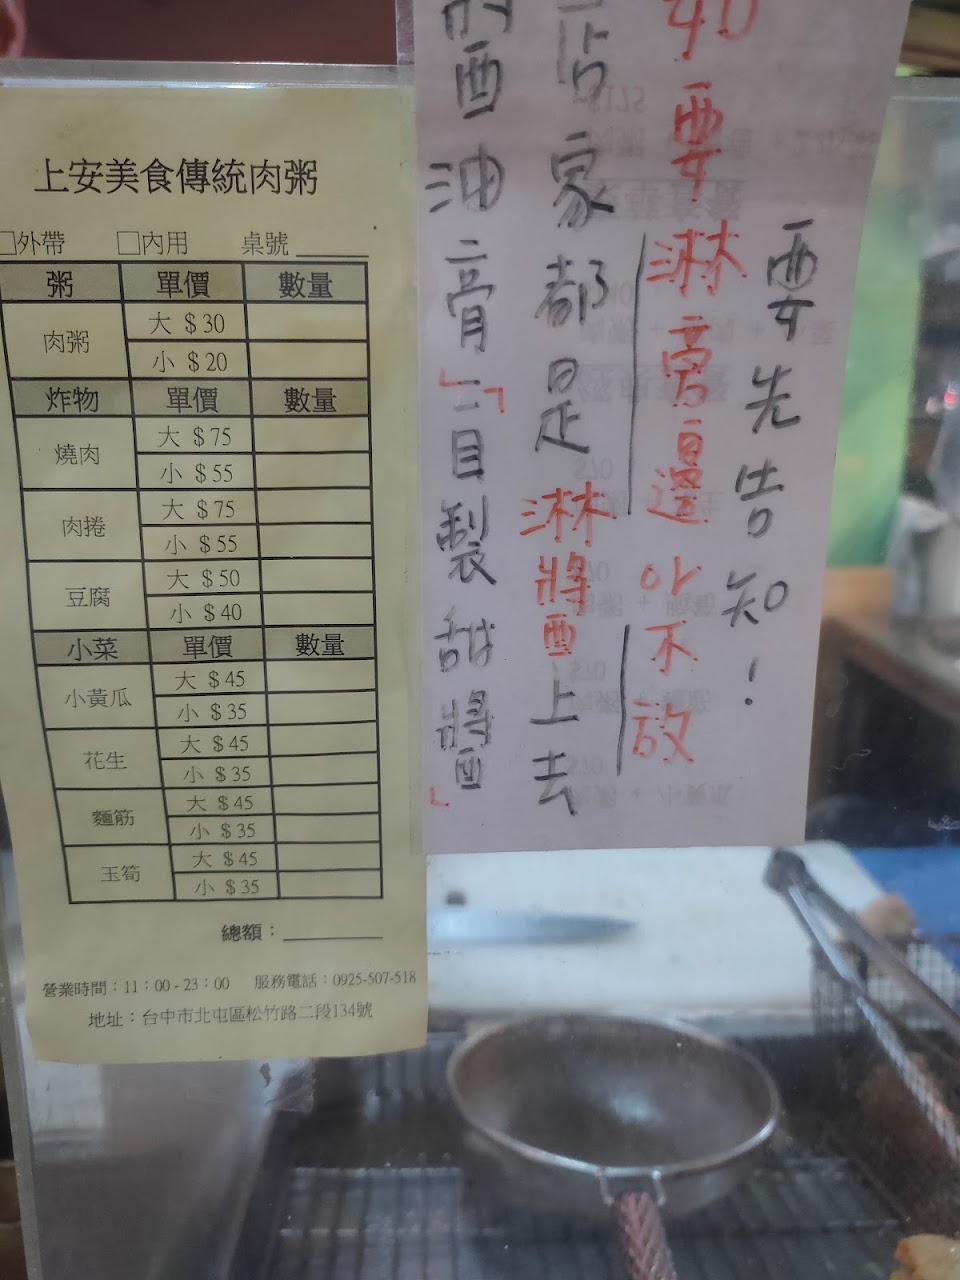 上安美食傳統肉粥
□外帶 □內用 桌號
粥 單價 數量
肉粥 大 $30
小 $20
炸物 單價 數量
燒肉 大 $75
小 $55
肉捲 大 $75
小 $55
豆腐 大 $50
小 $40
小菜 單價 數量
小黃瓜 大 $45
小 $35
花生 大 $45
小 $35
麵筋 大 $45
小 $35
玉筍 大 $45
小 $35
總額：
營業時間：11：00 - 23：00 服務電話：0925-507-518
地址：台中市北屯區松竹路二段134號
的酉油膏二自製甜醬
店家都是淋醬上去
如要淋旁邊or不放
要先告知！